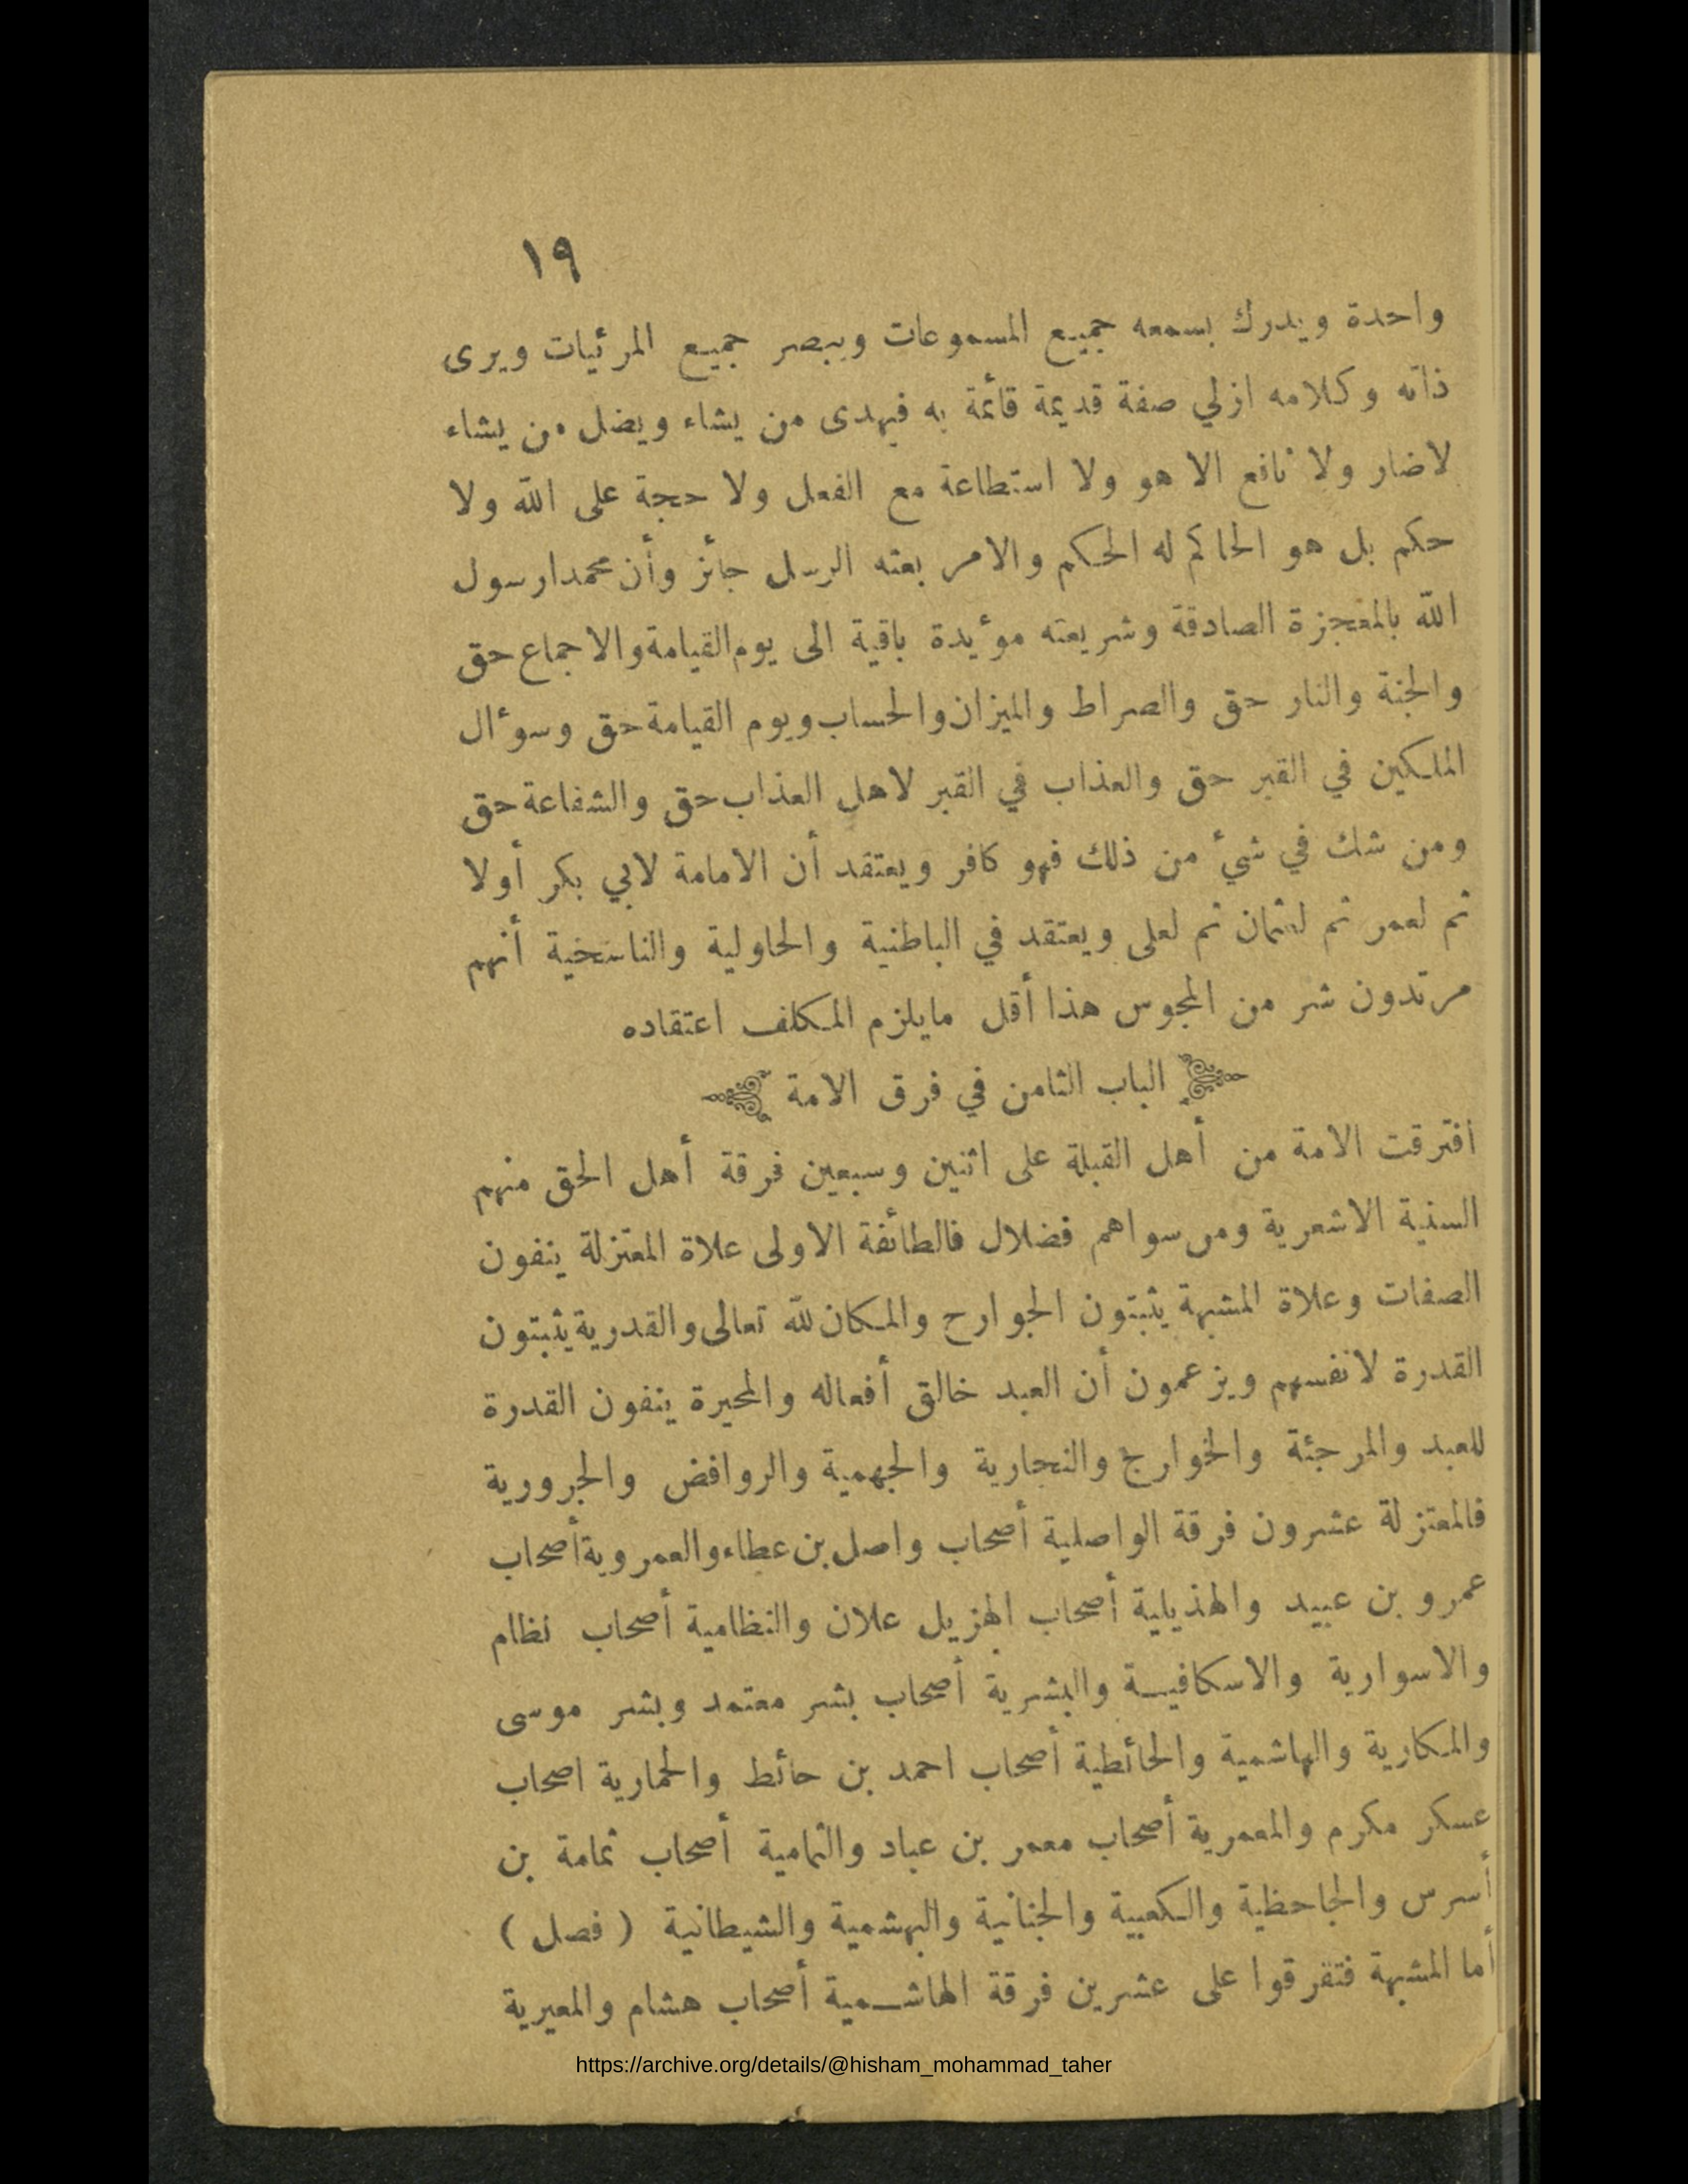 ١٩
واحدة ويدرك بسمعه جميع المسموعات ويبصر جميع المرئيات ويرى
ذاته وكلامه ازلي صفة قديمة قائمة به فيهدى من يشاء ويضل من يشاء
لاضار ولا نافع الا هو ولا استطاعة مع الفعل ولا حجة على الله ولا
حكم بل هو الحاكم له الحكم والامر بعثه الرسل جائز وأن محمدا رسول
الله بالمعجزة الصادقة وشريعته موءيدة باقية الى يوم القيامة والاجماع حق
والجنة والنار حق والصراط والميزان والحساب ويوم القيامة حق وسوءال
الملكين في القبر حق والعذاب في القبر لاهل العذاب حق والشفاعة حق
ومن شك في شيء من ذلك فهو كافر ويعتقد أن الامامة لابي بكر أولا
ثم لعمر ثم لعثمان ثم لعلى ويعتقد في الباطنية والحاولية والناسخية أنهم
مرتدون شر من المجوس هذا أقل مايلزم المكلف اعتقاده
الباب الثامن في فرق الامة
افترقت الامة من أهل القبلة على اثنين وسبعين فرقة أهل الحق منهم
السنية الاشعرية ومن سواهم فضلال فالطائفة الاولى علاة المعتزلة ينفون
الصفات وعلاة المشبهة يثبتون الجوارح والمكان لله تعالى والقدرية يثبتون
القدرة لانفسهم ويزعمون أن العبد خالق أفعاله والمحيرة ينفون القدرة
للعبد والمرجئة والخوارج والنجارية والجهمية والروافض والجرورية
فالمعتزلة عشرون فرقة الواصلية أصحاب واصل بن عطاء والعمروية أصحاب
عمرو بن عبيد والهذيلية أصحاب الهزيل علان والنظامية أصحاب نظام
والاسوارية والاسكافيـة والبشرية أصحاب بشر معتمد وبشر موسى
والمكارية والهاشمية والحائطية أصحاب احمد بن حائط والحمارية اصحاب
عسكر مكرم والمعمرية أصحاب معمر بن عباد والثمامية أصحاب ثمامة بن
أسرس والجاحظية والكعبية والجنانية والبهشمية والشيطانية ( فصل )
أما المشبهة فتفرقوا على عشرين فرقة الهاشـمية أصحاب هشام والمعيرية
https://archive.org/details/@hisham_mohammad_taher